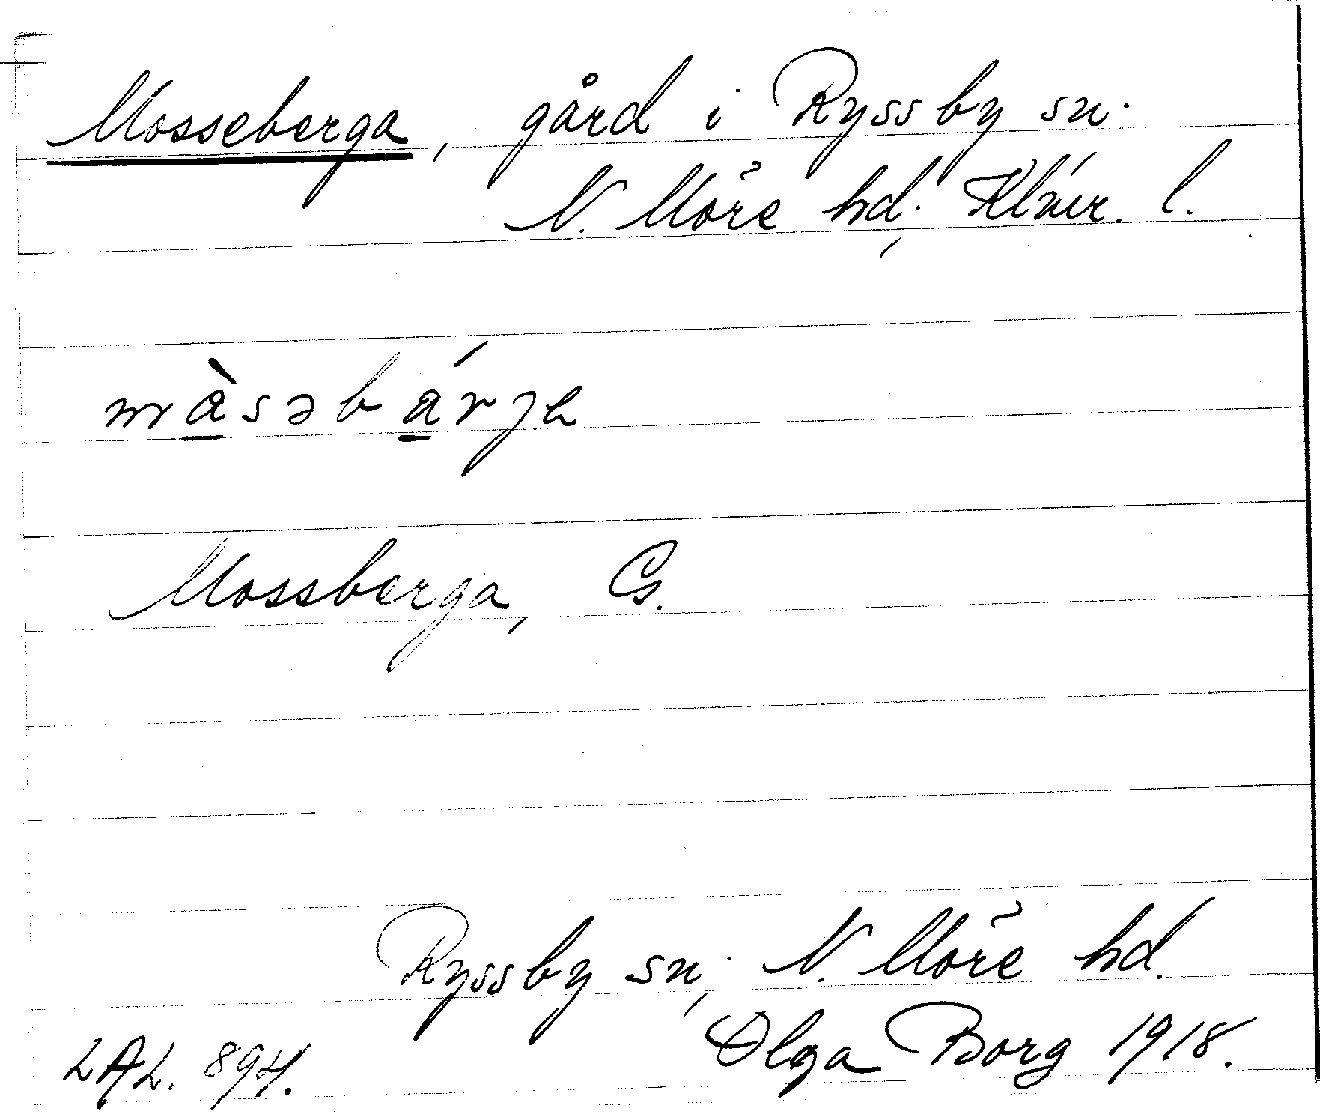 Mosseberga, gård i Ryssby sn.
N. Möre hd., Klmr. l.
màsəbárja
Mossberga, G.
Ryssby sn., N. Möre hd.
LAL. 894. Olga Borg 1918.